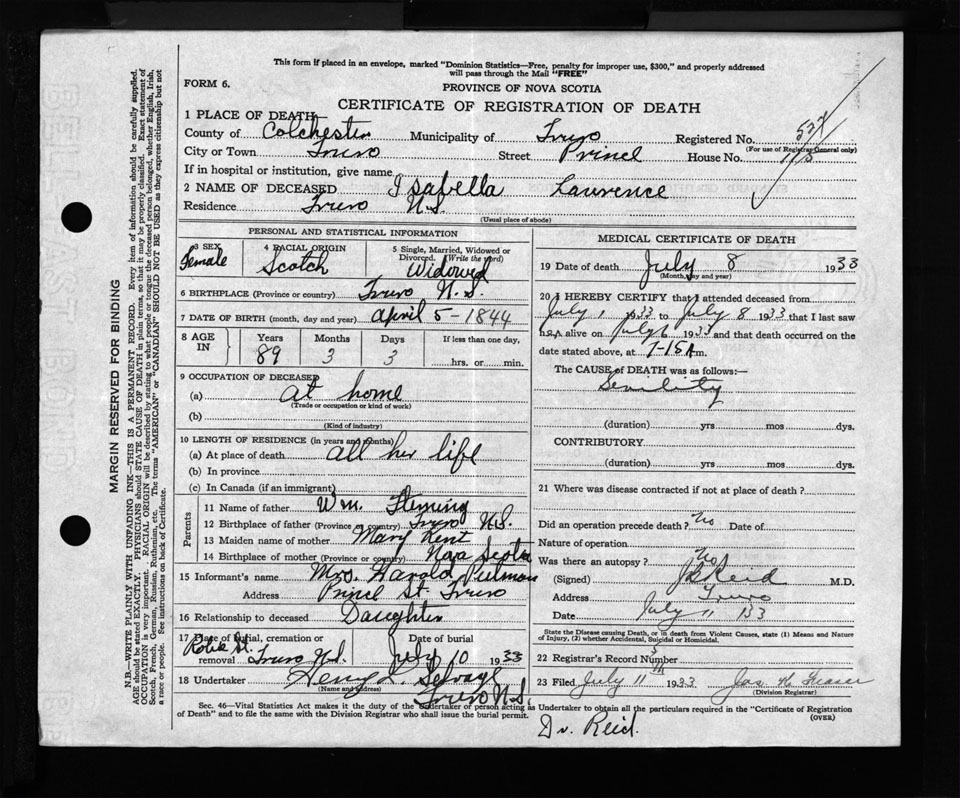 This form if placed in an envelope, marked "Dominion Statistics—Free, penalty for improper use, $300," and properly addressed
will pass through the Mail "FREE"
FORM 6.
PROVINCE OF NOVA SCOTIA
CERTIFICATE OF REGISTRATION OF DEATH
1 PLACE OF DEATH
County of Colchester Municipality of Truro Registered No.
(For use of Registrar General only)
City or Town Truro Street Prince House No. 115
If in hospital or institution, give name
2 NAME OF DECEASED Isabella Lawrence
Residence Truro N.S.
(Usual place of abode)
PERSONAL AND STATISTICAL INFORMATION
3 SEX Female
4 RACIAL ORIGIN Scotch
5 Single, Married, Widowed or Divorced (Write the word) Widowed
6 BIRTHPLACE (Province or country) Truro N.S.
7 DATE OF BIRTH (month, day and year) April 5 - 1844
8 AGE IN Years Months Days If less than one day,
89 3 3 hrs. or min.
9 OCCUPATION OF DECEASED
(a) At home
(Trade or occupation or kind of work)
(b)
(Kind of industry)
10 LENGTH OF RESIDENCE (in years and months)
(a) At place of death all her life
(b) In province
(c) In Canada (if an immigrant)
Parents
11 Name of father Wm. Fleming
12 Birthplace of father (Province or country) Truro N.S.
13 Maiden name of mother Mary Kent
14 Birthplace of mother (Province or country) Nova Scotia
15 Informant's name Mrs. Harold Putman
Address Prince St. Truro
16 Relationship to deceased Daughter
17 Place of burial, cremation or removal Robie St. Truro N.S.
Date of burial July 10 1933
18 Undertaker Henry L. Selvage
(Name and address) Truro N.S.
MEDICAL CERTIFICATE OF DEATH
19 Date of death July 8 1933
(Month, day and year)
20 I HEREBY CERTIFY that I attended deceased from
July 1 1933 to July 8 1933 that I last saw
her alive on July 6 1933 and that death occurred on the
date stated above, at 7-15 A m.
The CAUSE of DEATH was as follows:—
Senility
(duration) yrs mos. dys.
CONTRIBUTORY
(duration) yrs. mos. dys.
21 Where was disease contracted if not at place of death?
Did an operation precede death? No Date of
Nature of operation
Was there an autopsy? No
(Signed) Reid M.D.
Address Truro
Date July 11 133
State the Disease causing Death, or in death from Violent Causes, state (1) Means and Nature
of Injury, (2) whether Accidental, Suicidal or Homicidal.
22 Registrar's Record Number
23 Filed July 11 1933 Jas. H. Fraser
(Division Registrar)
Sec. 46—Vital Statistics Act makes it the duty of the Undertaker or person acting as Undertaker to obtain all the particulars required in the "Certificate of Registration
of Death" and to file the same with the Division Registrar who shall issue the burial permit.
(OVER)
Dr. Reid.
MARGIN RESERVED FOR BINDING
N.B.—WRITE PLAINLY WITH UNFADING INK—THIS IS A PERMANENT RECORD. Every item of information should be carefully supplied.
AGE should be stated EXACTLY. PHYSICIANS should STATE CAUSE OF DEATH in plain terms, so that it may be properly classified. Exact statement of
OCCUPATION is very important. RACIAL ORIGIN will be described by stating to what people or tongue the deceased person belonged, whether English, Irish,
Scotch, French, German, Russian, Ruthenian, etc. The terms "AMERICAN" or "CANADIAN" SHOULD NOT BE USED as they express citizenship but not
a race or people. See instructions on back of Certificate.